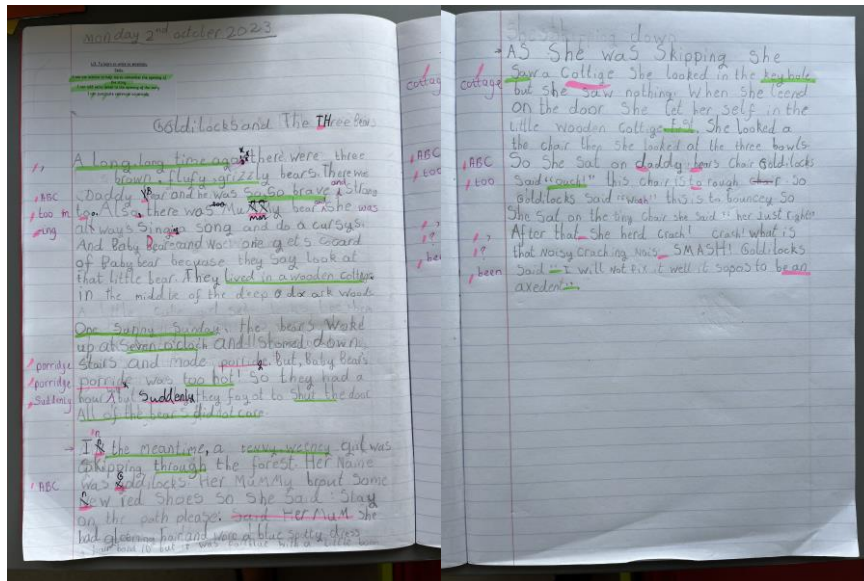 Monday 2nd octoler 2023
Goldilocks and The THree bears
A long, long time ago there were three
brown, flufy, grizzly bears. There were
Daddy Bear and he was so so brave and strong
too. Also there was Mummy bear and she was
always singing a song and do a cursys.
And Baby Bear and No one gets scard
of Baby bear becuase they say look at
that little bear. They lived in a wooden cottige
in the middle of the deep dark woods
One Sunny Sunday, the bears woke
up at seven o'clock and stomed down
stairs and made porridge. But, Baby Bears
porridge was too hot! So they had a
but Suddenly they forgot to shut the door
All of the bears did not care.
In the meantime, a teeny-weeney girl was
skipping through the forest. Her Name
was Goldilocks. Her Mummy brout some
New red shoes so she said: Stay
on the path please. Said Her Mum She
had gloming hair and wore a blue spotty dress
,ABC
,too
ing
,porridge
,porridge
,Suddenly
,ABC
She skipping down
As She was Skipping she
Saw a Cottige She looked in the keyhole
but she saw nothing. When she leend
on the door She let her self in the
little wooden Cottige. She looked a
the chair then she looked at the three bowls.
So She sat on daddy bears chair Goldilocks
Said "ouch!" this chair is to rough So
Goldilocks said this is to bouncey So
She sat on the tiny chair she said "her Just right"
After that she herd crach! crach! what is
that noisy craching nois SMASH! Goldilocks
Said I will not fix it well it sopos to be an
axedent
cottage
,ABC
,too
,?
,been